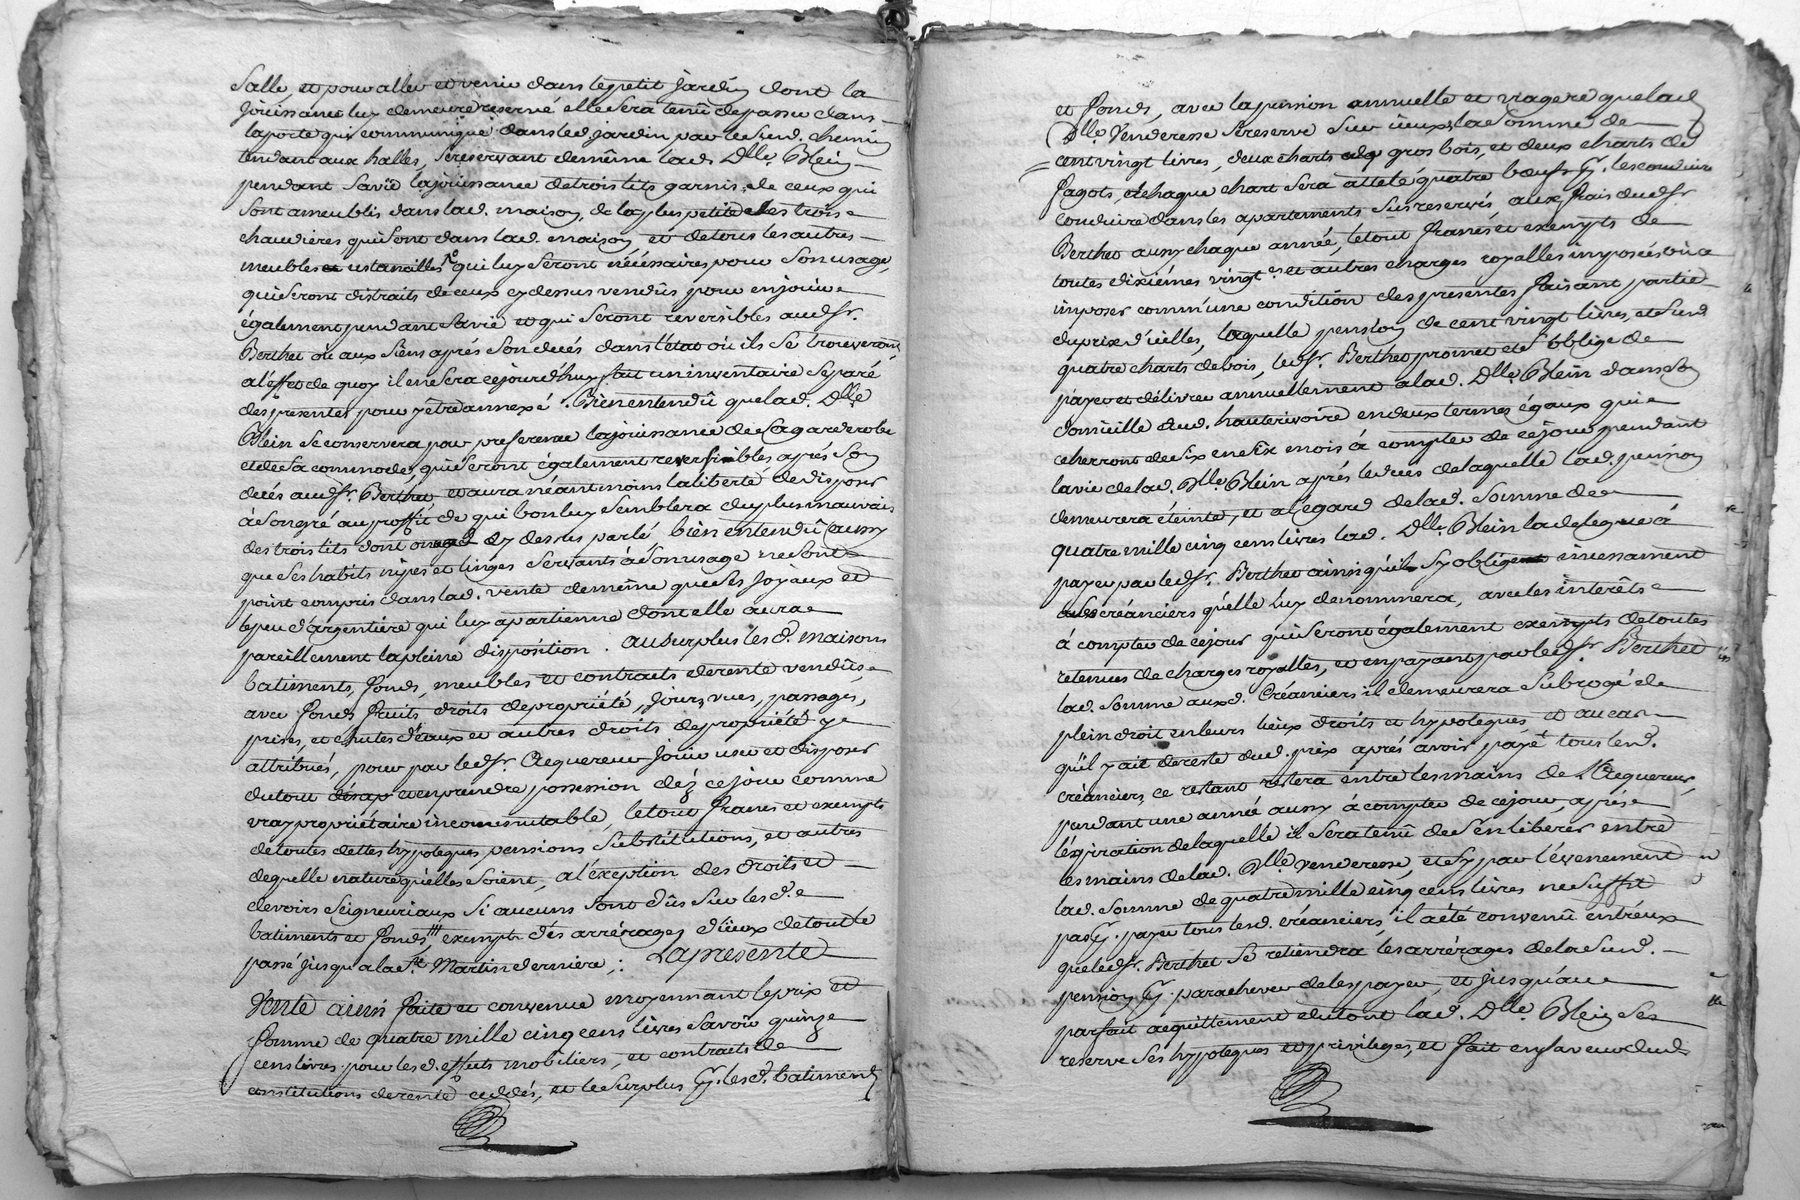 Salle, et pour aller et venir dans le petit Jardin dont la
Joüissance luy demeure reservé elle sera tenüe de passer dans
la porte qui communique dans led jardin, par le Sieud. chemin
tendant aux halles, se reservant de même lad. Dlle. Blein
pendant Sa vie la joüissance de trois lits garnis, de ceux qui
Sont ameublis dans lad. maison, de la plus petite des trois
chaudieres qui Sont dans lad. maison, et de tous les autres
meubles et ustancilles qui luy Seront nécéssaires pour Son usage,
qui Seront distraits de ceux cy dessus vendûs pour en joüir
également pendant Sa vie et qui Seront reversibles aud Sr.
Berthet ou aux Siens aprés Son décés dans l'état où ils Se trouveront,
a l'effet de quoy il en Sera cejourd'huy fait un inventaire Séparé
des presentes pour y être annexé. Bien entendû que lad. Dlle
Blein Se conservera par preference la joüissance de Sa garderobe
et de Sa commode, qui Seront également reversibles aprés Son
décés aud Sr. Berthet et aura néantmoins la liberté de disposer
à Son gré au proffit de qui bon luy Semblera du plus mauvais
des trois lits dont on cy dessus parlé, bien entendû aussy
que Ses habits nipes et linges Servants à Son usage ne Sont
point compris dans lad. vente de même que Ses Joyaux et
le peu d'argenterie qui luy apartienne dont elle aura
pareillement la pleine disposition. au Surplus les d. maisons
batiments, fonds, meubles et contrats de rente vendûs
avec fonds fruits droits de propriété, Jours, vües, passages,
prises, et chutes d'eaux et autres droits de propriété y
attribués, pour par led Sr. Acquereur Joüir user et disposer
du tout et en prendre possession déz ce jour comme
vray propriétaire incommutable, le tout francs et exempts
de toutes dettes hypoteques, pensions Substitutions, et autres
de quelle nature qu'elles Soient, a l'éxeption des droits et
devoirs Seigneuriaux Si aucuns Sont dûs Sur les d.
batiments et fonds, exempts des arrérages d'iceux de tout le
passé jusqu'a la St. Martin derniere; La presente
Vente ainsi faite et convenue moyennant le prix et
Somme de quatre mille cinq cens livres Savoir quinze
cens livres pour les d. effets mobiliers, et contrats de
constitutions de rente cedés, et le Surplus les d. batiments
et fonds, avec la pension annuelle et viagere que lad
Dlle. Venderesse Se reserve Sur iceux, la Somme de
cent vingt livres, deux charts de gros bois, et deux charts de
fagots, chaque chart Sera attelé quatre bœufs les conduire
conduire dans les apartements Sus reservés aux frais dud Sr
Berthet aussy chaque année, le tout francs et exempts de
toutes dixiémes vingt.es et autres charges royalles imposées ou a
imposer comm'une condition des presentes faisant partie
du prix d'icelles, laquelle pension de cent vingt livres, et Sud
quatre charts de bois, led Sr. Berthet promet et S'oblige de
payer et délivrer annuellement a lad. Dlle. Blein dans Son
domicille aud. hauterivoire en deux termes égaux qui
echerront de Six en Six mois à compter de ce jour pendant
la vie de lad. Dlle. Blein aprés le deces de laquelle lad. pension
demeurera éteinte, et a l'égard de lad. Somme de
quatre mille cinq cens livres lad. Dlle. Blein la delegue à
payer par led Sr. Berthet ainsi qu'il S'y oblige incessament
aux créanciers qu'elle luy denommera, avec les interêts
à compter de ce jour qui Seront également exempts de toutes
retenues de charges royalles, et en payant par led Sr. Berthet
lad. Somme auxd. Créanciers il demeurera Subrogé de
plein droit en leurs lieux droits et hypoteques et au cas
qu'il y ait de reste dud. prix aprés avoir payé tous lesd.
créanciers, ce restant restera entre les mains de l'Acquereur,
pendant une année aussy à compter de ce jour, aprés
l'éxpiration de laquelle il Sera tenû de S'en liberer entre
les mains de lad. Dlle venderesse, et Sy par l'évenement
lad. Somme de quatre mille cinq cens livres ne Suffit
pas payer tous lesd. créanciers, il a été convenû entr'eux
que led Sr. Berthet Se retiendra les arrérages de la Susd.
pension parachever de les payer, et jusqu'au
parfait acquittement du tout lad. Dlle. Blein Se
reserve Ses hypoteques et privileges, et fait en faveur dud